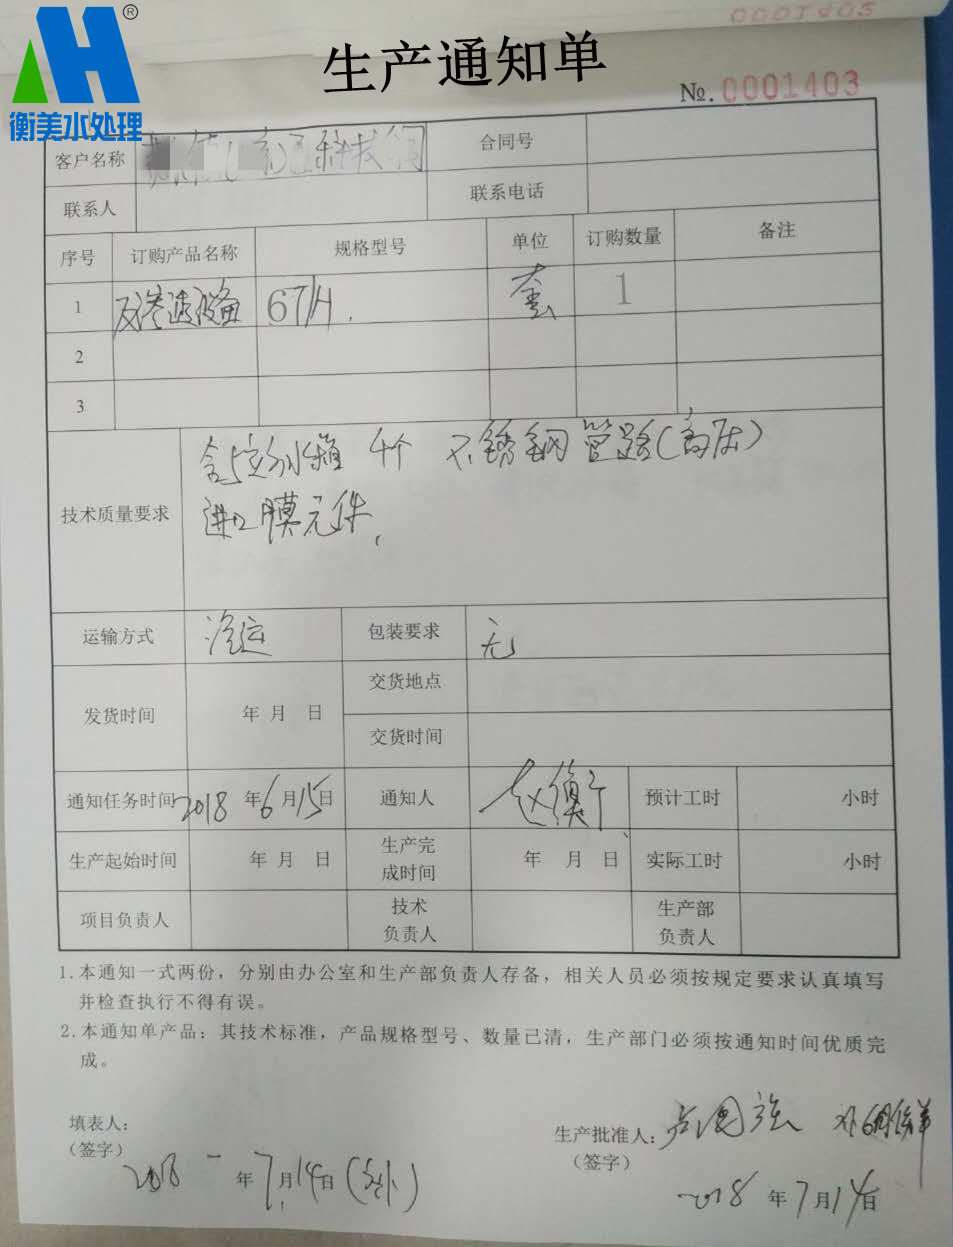 0001405
衡美水处理®
生产通知单
No. 0001403
客户名称 科技 合同号
联系人 联系电话
序号 订购产品名称 规格型号 单位 订购数量 备注
1 反渗透设备 6T/H. 套 1
2
3
技术质量要求 含 水箱 4个 不锈钢管路(高压)
进口膜元件.
运输方式 汽运 包装要求 无
发货时间 年 月 日 交货地点
交货时间
通知任务时间 2018年6月15日 通知人 赵衡 预计工时 小时
生产起始时间 年 月 日 生产完成时间 年 月 日 实际工时 小时
项目负责人 技术负责人 生产部负责人
1.本通知一式两份,分别由办公室和生产部负责人存备,相关人员必须按规定要求认真填写
并检查执行不得有误。
2.本通知单产品:其技术标准,产品规格型号、数量已清,生产部门必须按通知时间优质完
成。
填表人: 生产批准人:
(签字) (签字)
2018年7月14日 2018年7月14日